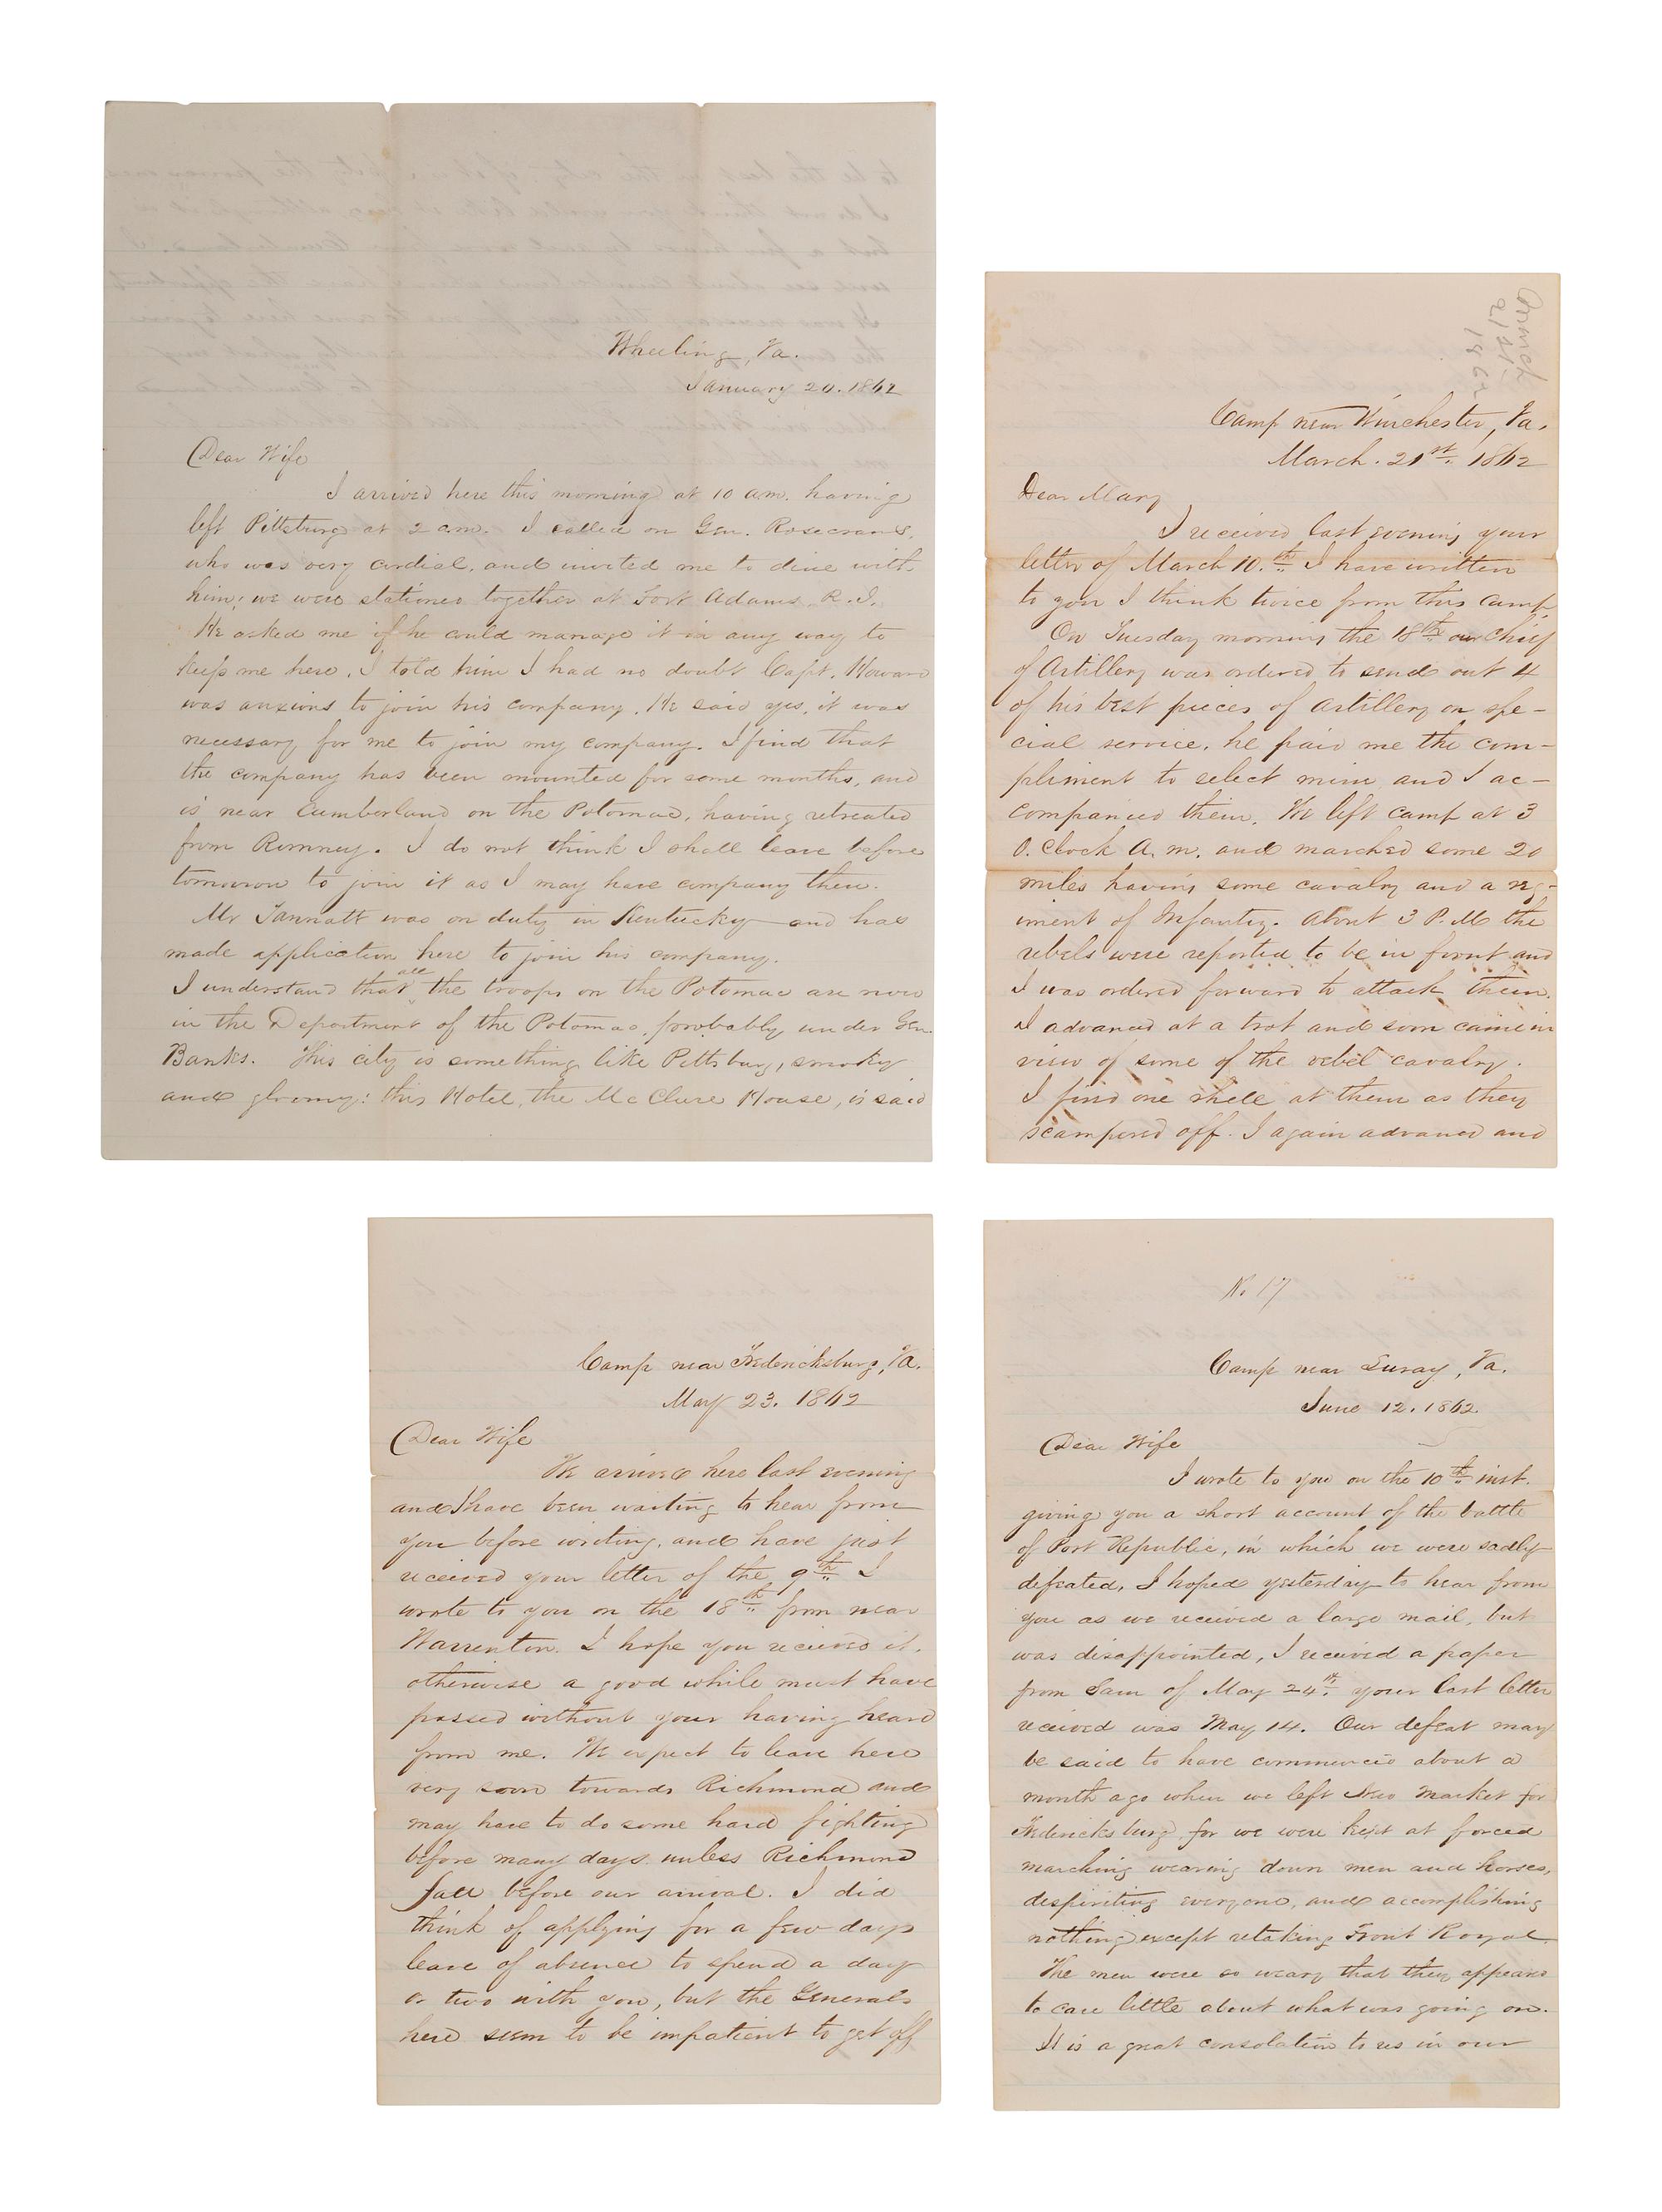 Wheeling, Va.
January 20. 1862
Dear Wife
I arrived here this morning at 10 a.m. having
left Pittsburg at 2 a.m. I called on Gen. Rosecrans,
who was very cordial, and invited me to dine with
him; we were stationed together at Fort Adams, R.I.
He asked me if he could manage it in any way to
keep me here. I told him I had no doubt Capt. Howard
was anxious to join his company. He said yes, it was
necessary for me to join my company. I find that
the company has been mounted for some months, and
is near Cumberland on the Potomac, having retreated
from Romney. I do not think I shall leave before
tomorrow to join it as I may have company then.
Mr Tannatt was on duty in Kentucky and has
made application here to join his company.
I understand that all the troops on the Potomac are now
in the Department of the Potomac, probably under Gen.
Banks. This city is something like Pittsburg, smoky
and gloomy: this Hotel, the McClure House, is said
March
21st
1862
Camp near Winchester, Va.
March. 21st. 1862
Dear Mary
I received last evening your
letter of March 10.th I have written
to you I think twice from this camp.
On Tuesday morning the 18th our Chief
of Artillery was ordered to send out 4
of his best pieces of Artillery on spe-
cial service, he paid me the com-
pliment to select mine and I ac-
companied them. We left camp at 3
O.Clock A.M. and marched some 20
miles having some cavalry and a reg-
iment of Infantry. About 3 P.M the
rebels were reported to be in front and
I was ordered forward to attack them.
I advanced at a trot and soon came in
view of some of the rebel cavalry.
I fired one shell at them as they
scampered off. I again advanced and
Camp near Fredericksburg, Va.
May 23. 1862
Dear Wife
We arrived here last evening
and I have been waiting to hear from
you before writing, and have just
received your letter of the 9th I
wrote to you on the 18th from near
Warrenton. I hope you received it,
otherwise a good while must have
passed without your having heard
from me. We expect to leave here
very soon towards Richmond and
may have to do some hard fighting
before many days unless Richmond
fall before our arrival. I did
think of applying for a few days
leave of absence to spend a day
or two with you, but the Generals
here seem to be impatient to get off
N. 17
Camp near Luray, Va.
June 12. 1862.
Dear Wife
I wrote to you on the 10th inst.
giving you a short account of the battle
of Port Republic, in which we were sadly
defeated, I hoped yesterday to hear from
you as we received a large mail, but
was disappointed, I received a paper
from Sam of May 24th. your last letter
received was May 14. Our defeat may
be said to have commenced about a
month ago when we left New Market for
Fredericksburg for we were kept at forced
marching wearing down men and horses,
despiriting everyone, and accomplishing
nothing except retaking Front Royal.
The men were so weary that they appeared
to care little about what was going on.
It is a great consolation to us in our